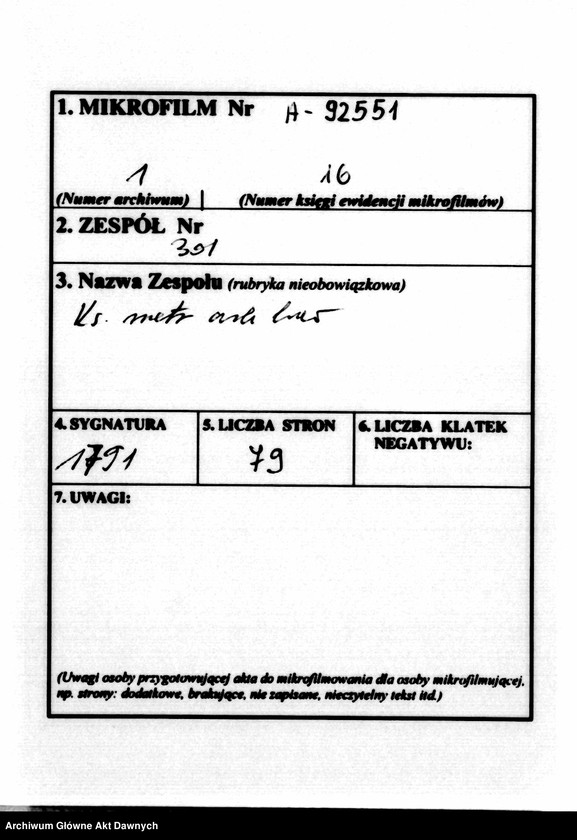 1. MIKROFILM Nr A-92551
1 16
(Numer archiwum) (Numer księgi ewidencji mikrofilmów)
2. ZESPÓŁ Nr
301
3. Nazwa Zespołu (rubryka nieobowiązkowa)
Ks. metr
4. SYGNATURA 5. LICZBA STRON 6. LICZBA KLATEK
NEGATYWU:
1791 79
7. UWAGI:
(Uwagi osoby przygotowującej akta do mikrofilmowania dla osoby mikrofilmującej,
np. strony: dodatkowe, brakujące, nie zapisane, nieczytelny tekst itd.)
Archiwum Główne Akt Dawnych